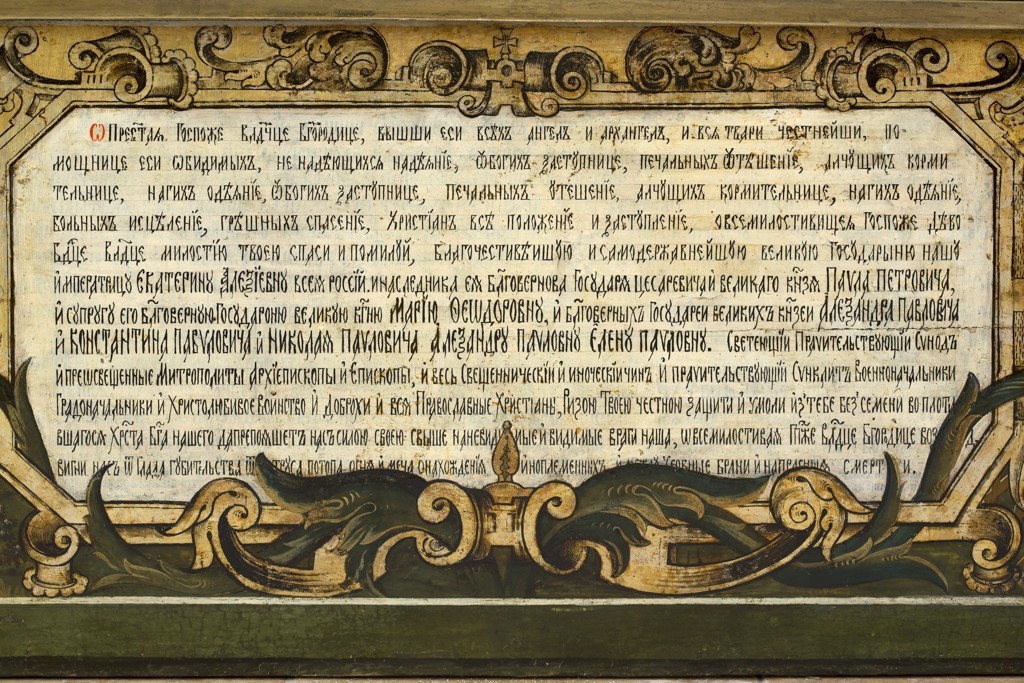 Ѡ Престая. Госпоже Влдчце Бгородице, вышши еси всѣхъ ангелъ и архангелъ, и вся твари честнейши, по-
мощнице еси ѡбидимыхъ, не надѣющихся надѣянїе, ѹбогихъ заступнице, печальныхъ ѹтѣшенїе, алчущихъ корми
тельнице, нагихъ одѣянїе, ѹбогихъ заступнице, печальныхъ ѹтешенїе, алчущихъ кормительнице, нагихъ одѣянїе,
больныхъ исцѣленїе, грѣшныхъ спасенїе, Христїанъ всѣ положенїе и заступленїе, о всемилостивищея Госпоже Дѣво
Бдце Влдце милостїю твоею спаси и помилуй, Благочестивѣишою и самодержавнейшою великою Государыню нашю
и҆мператрицу Екатерину Алеѯїевну всея россїи. и наследника ея бл҃говернова Государя цесаревича и҆ великаго кн҃зя Паѵла Петровича,
И҆ супругу его бл҃говерную Государоню великую кг҃ню Марїю Ѳеѡдоровну, и҆ бл҃говерныхъ Государеи великихъ кн҃зеи Алеѯандра Павловича
и҆ Константина Павуловича и҆ Николая Паѵловича Алеѯандру Паѵловну Елену Паѵловну. Светеющїи Праѵительствующїи Сѵнодъ
и҆ преѡсвещенные Митрополиты Архїепископы и҆ Епископы, и҆ весь Свещенническїи и҆ иноческїи чинъ И҆ праѵительствующїи Сѵнклитъ Военноначальники
Градоначальники и҆ Христолюбивое воинство И҆ Доброхи и҆ вся Православные Христїаны, Ризою Твоею честною защити и҆ умоли и҆зъ тебе безъ семени во плоть
вшагося Хрста Бг҃а нашего да препоѧшетъ насъ силою своею свыше на невидимые и҆ видимые враги наша, ѡ всемилостивая Гпже Влдце Бгордице воз
вигни насъ ѿ Глада губительства труса потопа огня и҆ меча онахождения иноплеменныхъ Усобные брани и҆ напрасния смерти.